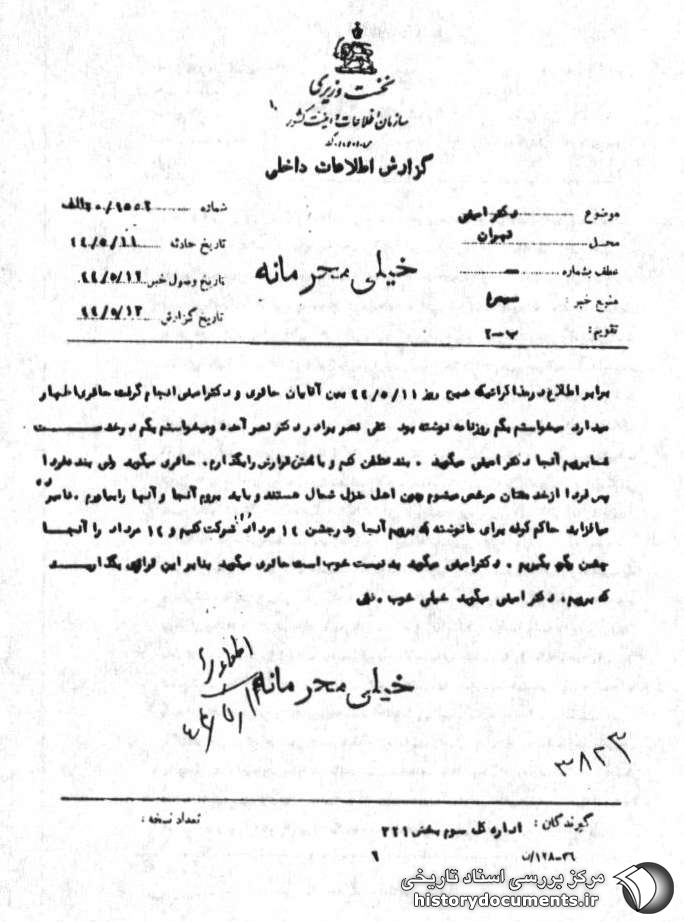 نخست وزیری
سازمان اطلاعات و امنیت کشور
گزارش اطلاعات داخلی
موضوع دکتر امینی
محل تهران
عطف بشماره —
منبع خبر :
تقویم:
شماره
تاریخ حادثه ۴۴/۵/۱۱
تاریخ وصول خبر ۴۴/۵/۱۲
تاریخ گزارش
خیلی محرمانه
برابر اطلاع در مذاکراتیکه صبح روز ۴۴/۵/۱۱ بین آقایان حائری و دکتر امینی انجام گرفت حائری اظهار
میدارد میخواستم بگم روزنامه نوشته بود علی نصر برادر دکتر نصر آمده ومیخواستم بگم در خدمت
شما برویم آنجا دکتر امینی میگوید . بنده تلفن کنم و با بگذارم. حائری میگوید ولی بنده فردا
پس فردا از خدمتتان مرخص میشوم چون اهل منزل شمال هستند و باید بروم آنجا و آنها را بیاورم .
حاکم برای ما نوشته که برویم آنجا و در جشن ۱۴ مرداد شرکت کنیم و ۱۴ مرداد را آنجا
جشن بگیریم . دکتر امینی میگوید بد نیست خوب است حائری میگوید بنابر این قراری بگذارید
که برویم. دکتر امینی میگوید خیلی خوب .
خیلی محرمانه
۳۸۲۳
گیرندگان : اداره کل سوم بخش ۳۲۱
تعداد نسخه :
مرکز بررسی اسناد تاریخی
historydocuments.ir